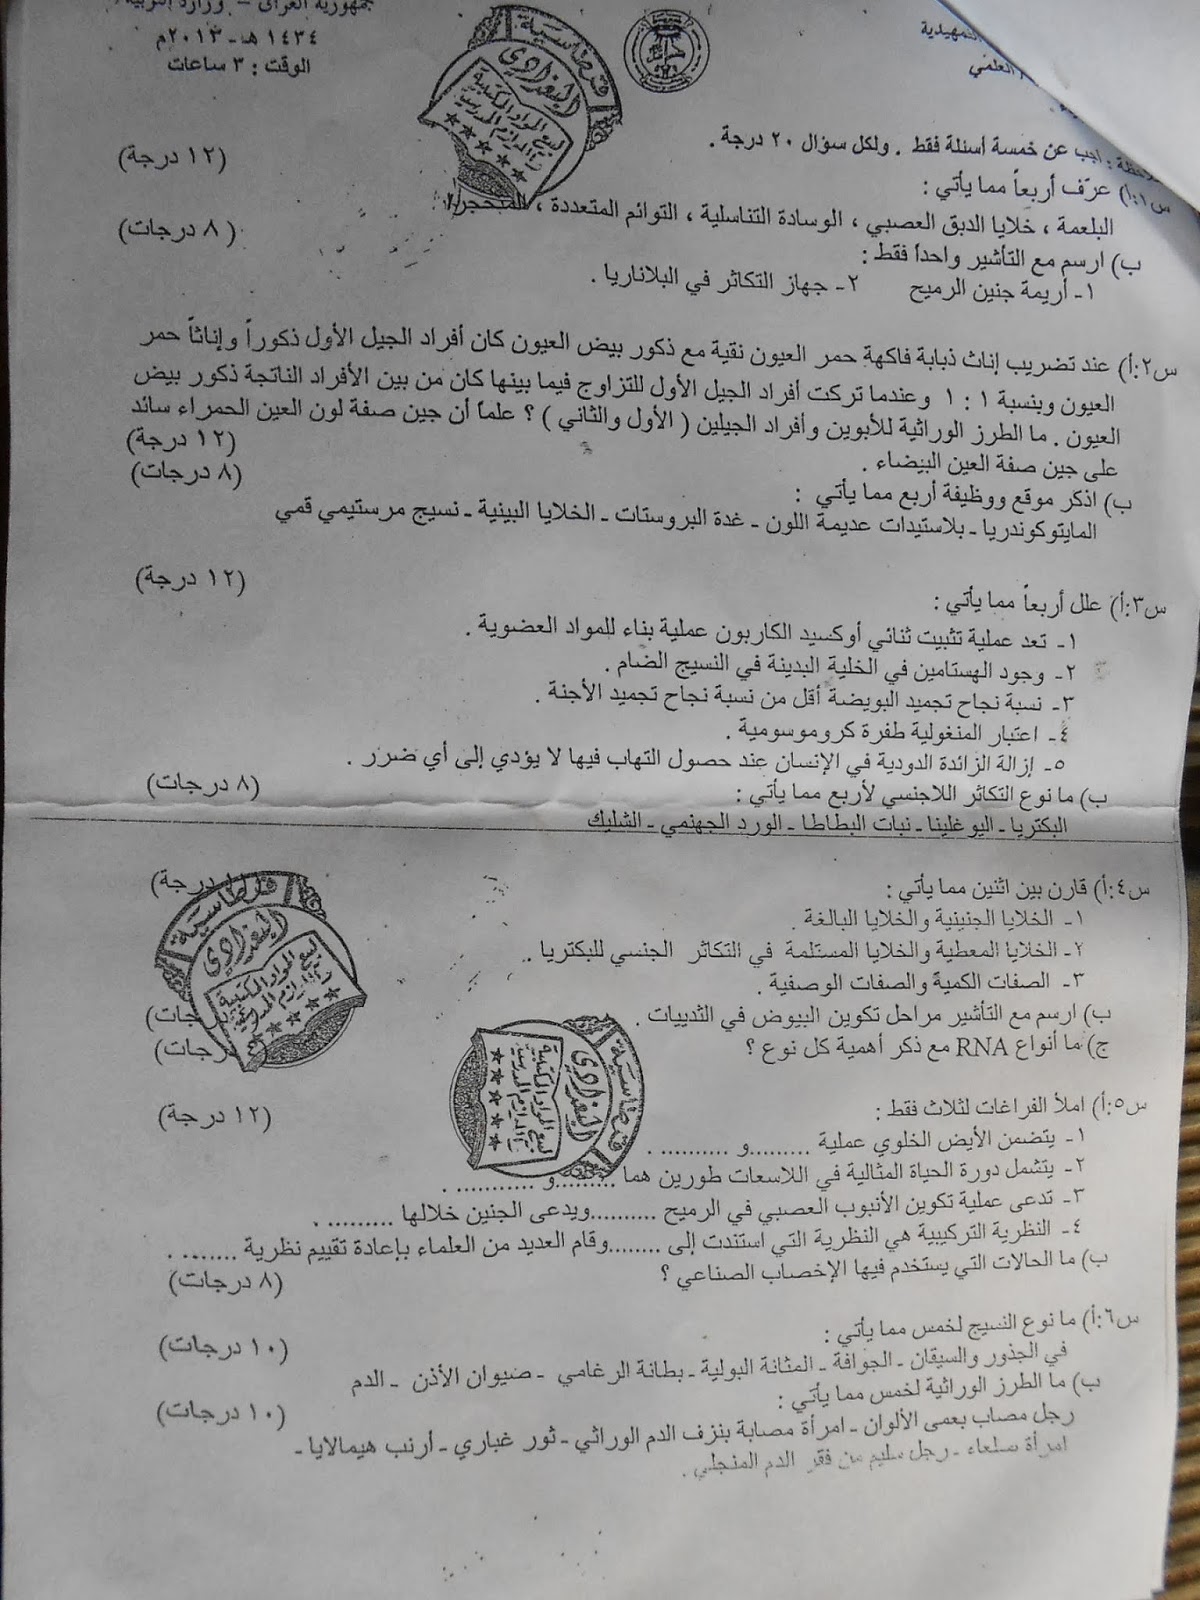 جمهورية العراق - وزارة التربية
١٤٣٤ هـ - ٢٠١٣م
الوقت : ٣ ساعات
التمهيدية
العلمي
ملاحظة : اجب عن خمسة أسئلة فقط . ولكل سؤال ٢٠ درجة .
س١:أ) عرّف أربعاً مما يأتي : (١٢ درجة)
البلعمة ، خلايا الدبق العصبي ، الوسادة التناسلية ، التوائم المتعددة ، المتحجرات
ب) ارسم مع التأشير واحداً فقط : (٨ درجات)
١- أريمة جنين الرميح ٢- جهاز التكاثر في البلاناريا .
س٢:أ) عند تضريب إناث ذبابة فاكهة حمر العيون نقية مع ذكور بيض العيون كان أفراد الجيل الأول ذكوراً وإناثاً حمر
العيون وبنسبة ١ : ١ وعندما تركت أفراد الجيل الأول للتزاوج فيما بينها كان من بين الأفراد الناتجة ذكور بيض
العيون . ما الطرز الوراثية للأبوين وأفراد الجيلين ( الأول والثاني ) ؟ علماً أن جين صفة لون العين الحمراء سائد
على جين صفة العين البيضاء . (١٢ درجة)
ب) اذكر موقع ووظيفة أربع مما يأتي : (٨ درجات)
المايتوكوندريا ـ بلاستيدات عديمة اللون ـ غدة البروستات ـ الخلايا البينية ـ نسيج مرستيمي قمي
س٣:أ) علل أربعاً مما يأتي : (١٢ درجة)
١- تعد عملية تثبيت ثنائي أوكسيد الكاربون عملية بناء للمواد العضوية .
٢- وجود الهستامين في الخلية البدينة في النسيج الضام .
٣- نسبة نجاح تجميد البويضة أقل من نسبة نجاح تجميد الأجنة .
٤- اعتبار المنغولية طفرة كروموسومية .
٥- إزالة الزائدة الدودية في الإنسان عند حصول التهاب فيها لا يؤدي إلى أي ضرر .
ب) ما نوع التكاثر اللاجنسي لأربع مما يأتي : (٨ درجات)
البكتريا ـ اليوغلينا ـ نبات البطاطا ـ الورد الجهنمي ـ الشليك
س٤:أ) قارن بين اثنين مما يأتي : درجة)
١- الخلايا الجنينية والخلايا البالغة .
٢- الخلايا المعطية والخلايا المستلمة في التكاثر الجنسي للبكتريا .
٣- الصفات الكمية والصفات الوصفية .
ب) ارسم مع التأشير مراحل تكوين البيوض في الثدييات . درجات)
ج) ما أنواع RNA مع ذكر أهمية كل نوع ؟ درجات)
س٥:أ) املأ الفراغات لثلاث فقط : (١٢ درجة)
١- يتضمن الأيض الخلوي عملية .........و .......... .
٢- يتشمل دورة الحياة المثالية في اللاسعات طورين هما .........و .......... .
٣- تدعى عملية تكوين الأنبوب العصبي في الرميح ..........ويدعى الجنين خلالها ......... .
٤- النظرية التركيبية هي النظرية التي استندت إلى ........وقام العديد من العلماء بإعادة تقييم نظرية ........ .
ب) ما الحالات التي يستخدم فيها الإخصاب الصناعي ؟ (٨ درجات)
س٦:أ) ما نوع النسيج لخمس مما يأتي : (١٠ درجات)
في الجذور والسيقان ـ الجوافة ـ المثانة البولية ـ بطانة الرغامي ـ صيوان الأذن ـ الدم
ب) ما الطرز الوراثية لخمس مما يأتي : (١٠ درجات)
رجل مصاب بعمى الألوان ـ امرأة مصابة بنزف الدم الوراثي ـ ثور غباري ـ أرنب هيمالايا ـ
امرأة سلعاء ـ رجل سليم من فقر الدم المنجلي .
قرطاسية
البغدادي
لبيع المواد المكتبية
قرطاسية
البغدادي
قرطاسية
البغدادي
لبيع المواد المكتبية